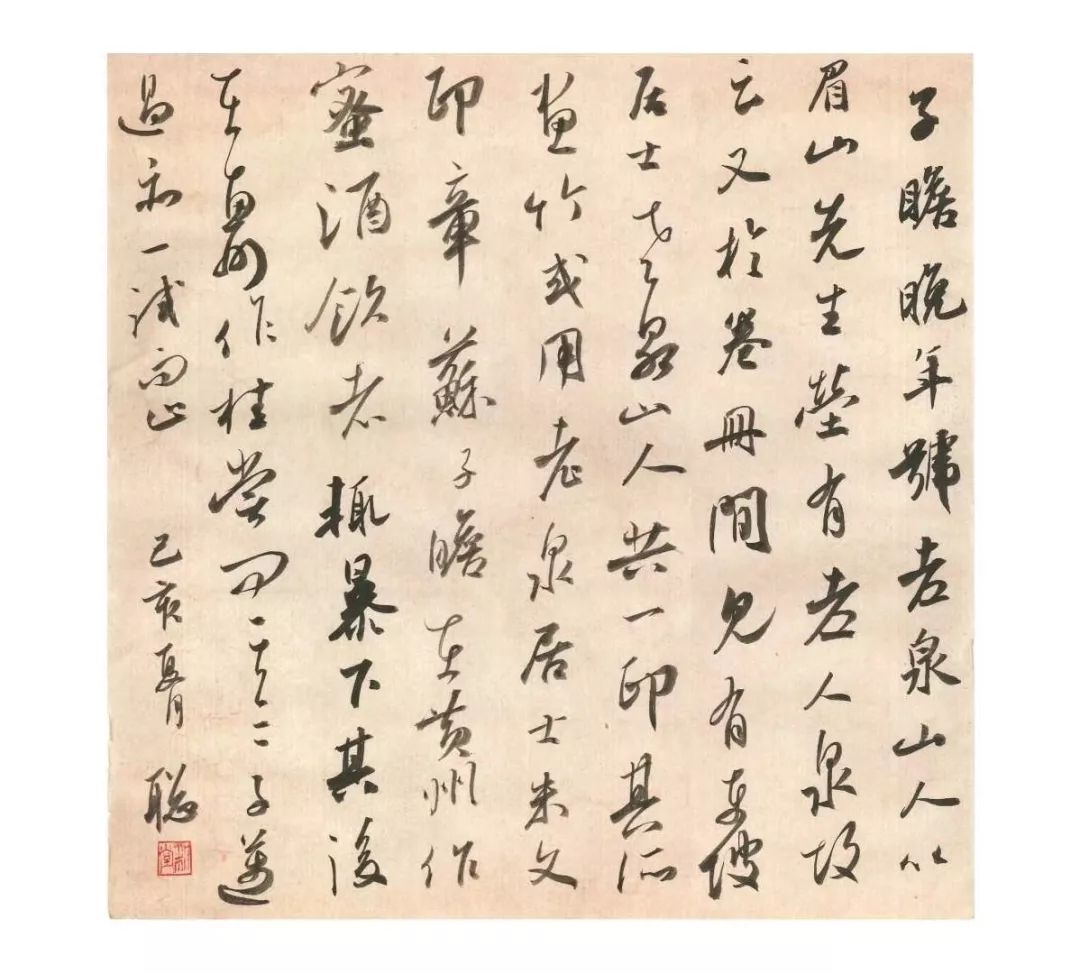 子瞻晚年號老泉山人以
眉山先生塋有老人泉故
云又於卷冊間見有東坡
居士老泉山人共一印其所
畫竹或用老泉居士朱文
印章蘇子瞻在黃州作
蜜酒飲者輒暴下其後
在惠州作桂嘗問其二子邁
過云一試而止
己亥夏月 聰